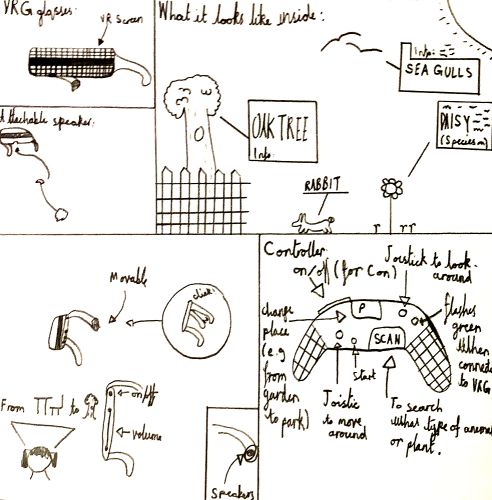 VRG glasses:
VR Screen
What it looks like inside:
Info:
SEA GULLS
OAK TREE
Info:
DAISY
(Species m)
RABBIT
tachable speaker:
Movable
click!
From
to
on/off
volume
Speakers
Controller:
on/off (for Con)
Joistick to look
around
P
SCAN
change
place
(e.g
from
garden
to park)
start
flashes
green
When
connected
to VRG
Joistic
to move
around
To search
What type of animal
or plant.